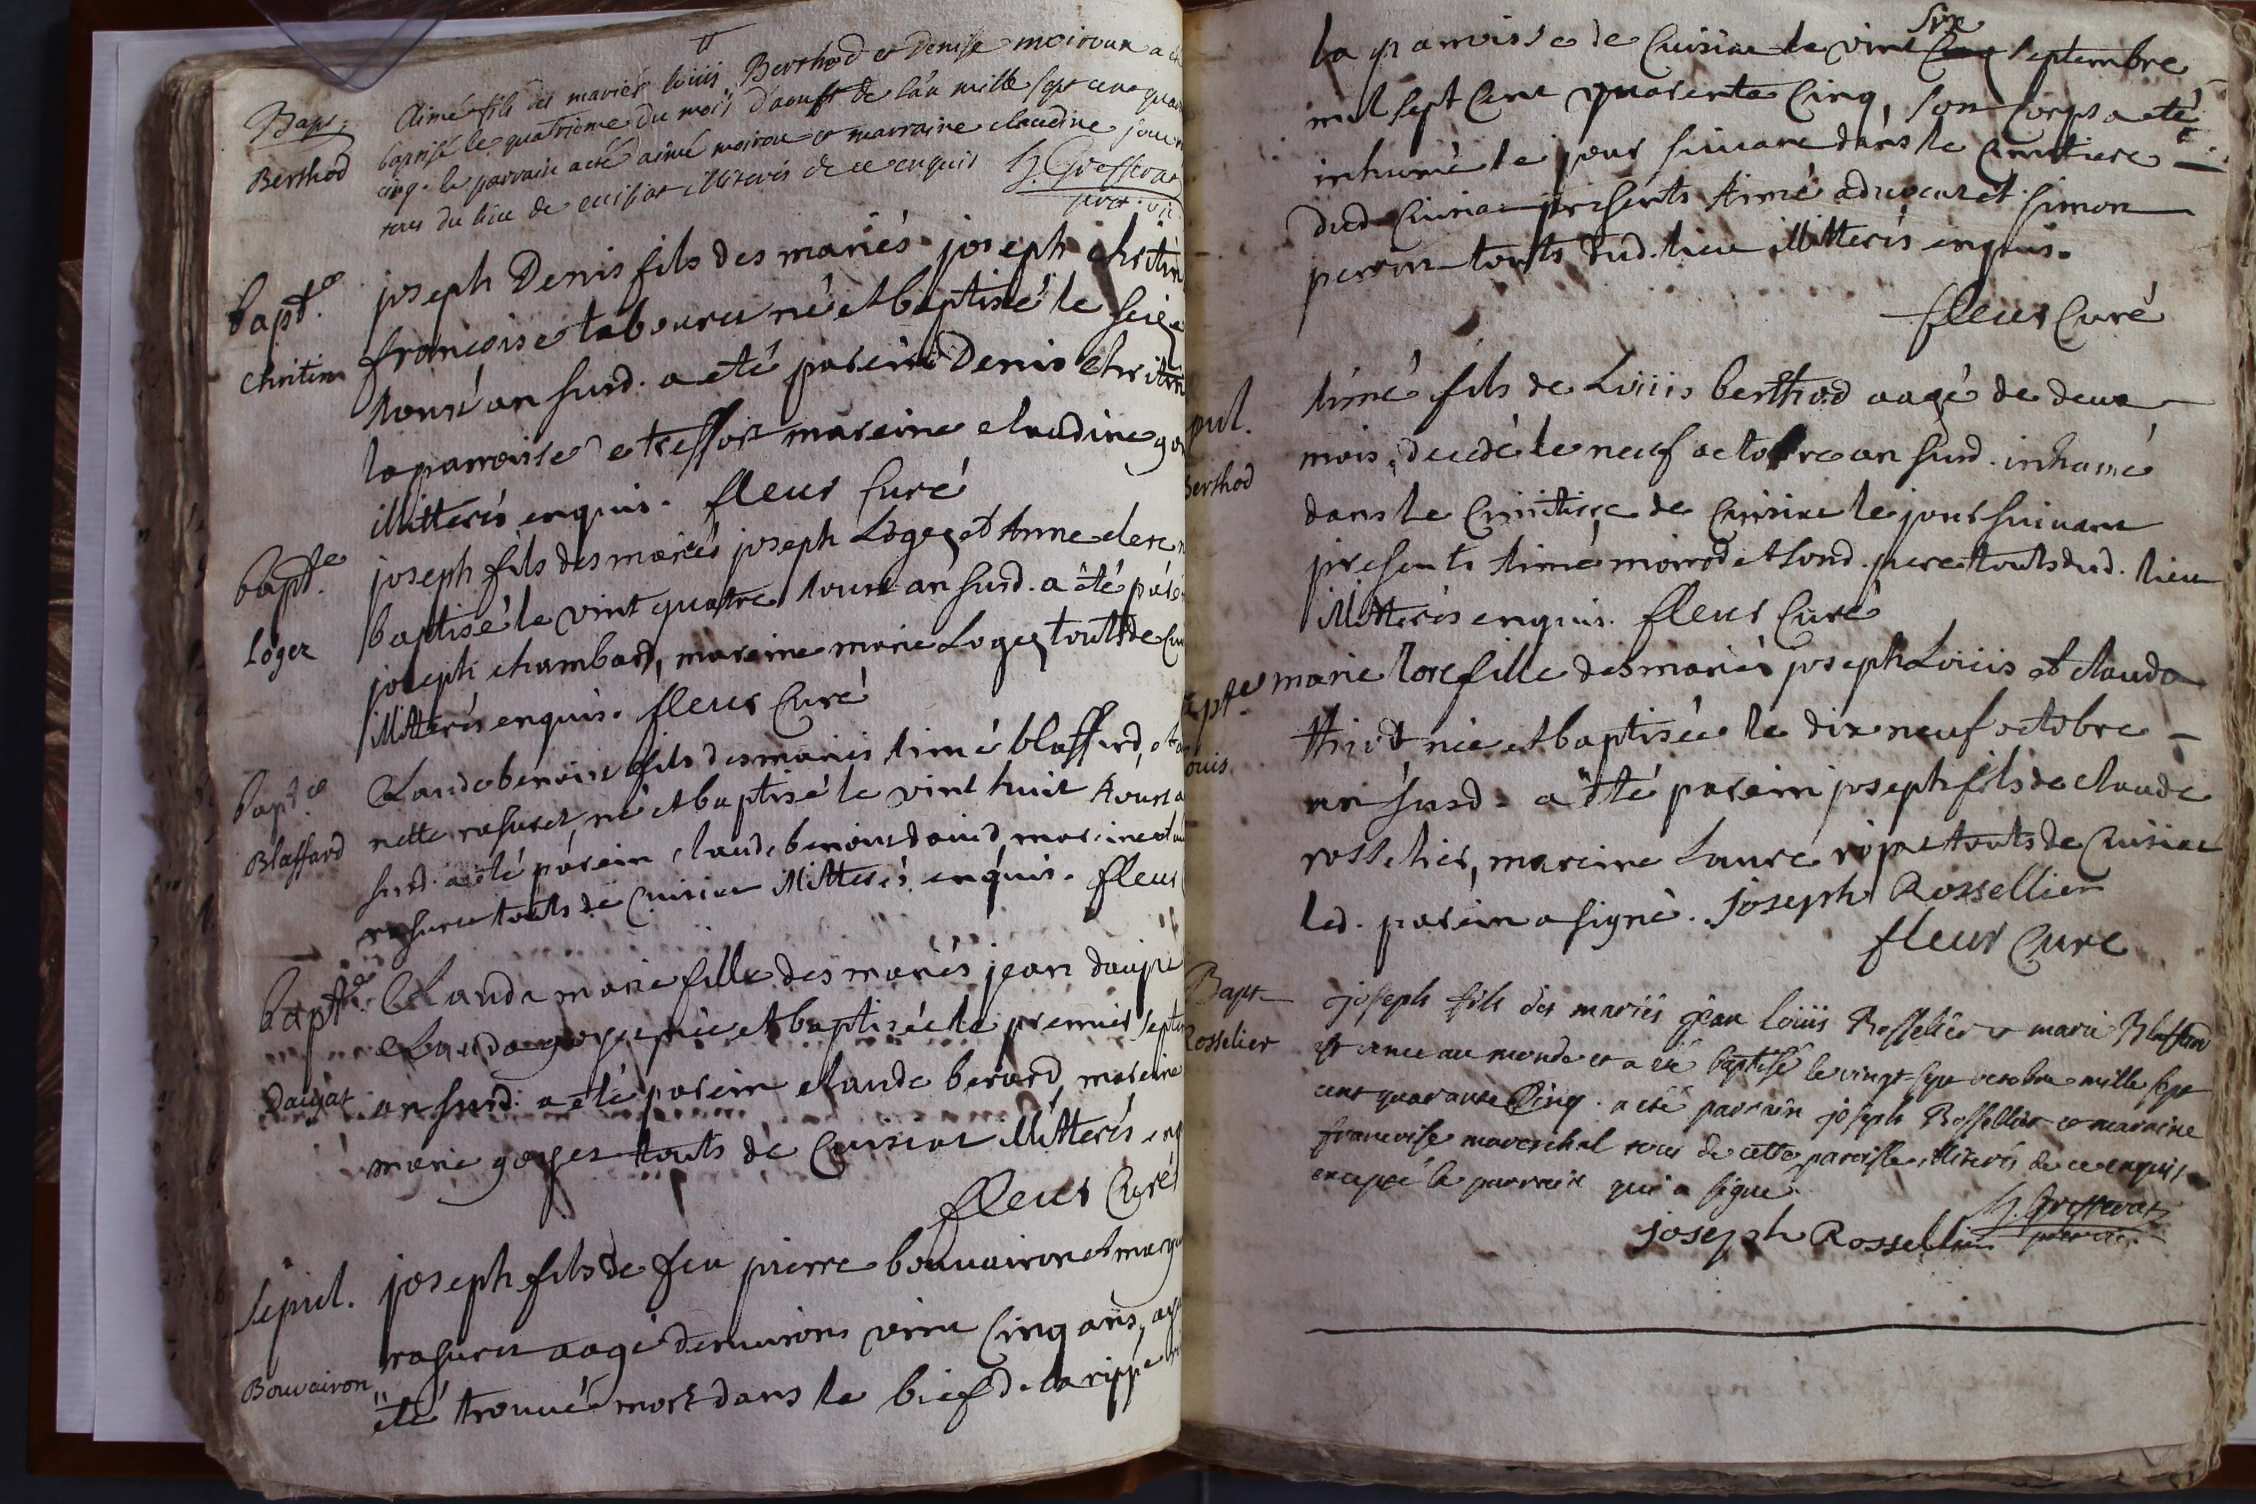 Bapt.
Berthod
Aimé fils des mariés loüis Berthod et Denise moiroux a
baptisé le quatrième du mois d'aoust de l'an mille sept cent quar
cinq. le parrain a été aimé moirou et marraine claudine
tous du lieu de cuisiat illiterés de ce enquis
bapt.e
Chritin
joseph Denis fils des mariés joseph chritin
francoise tabouret né et baptisé le seize
Aoust an susd. a été parein Denis Chritin
la parroisse de treffort mareine claudine
illitterés enquis. fleur Curé
bapt.e
Loger
joseph fils des mariés joseph Loger et Anne clerc
baptisé le vint quatre Aoust an susd. a été par
joseph chambard, mareine marie Loger touts de Cui
illitterés enquis. fleur Curé
bapt.e
Blaffard
Claude benoist fils des mariés Aimé blaffard, et
nette rasurel, né et baptisé le vint huit Aoust
susd. a été parein claude benoist david, mareine
rasurel touts de Cuisiat illitterés enquis. fleur
bapt.e
Daujat
Claude marie fille des mariés jean daujat
Clauda goyet née et baptisée le premier sept
an susd. a été parein claude berard, mareine
marie goyet touts de Cuisiat illitterés enq
fleur Curé
sepul.
Bouvairon
joseph fils de feu pierre bouvairon et marg
rasurel aagé d'environs vint Cinq ans, aya
été trouvé mort dans le bief de la rippe
la parroisse de Cuisiat le vint Cinq six septembre
mil sept Cent quarente Cinq, son Corps a été
inhumé le jour suivant dans le Cimitiere
dud. Cuisiat presents Aimé aduocat et simon
perrin touts dud. lieu illitterés enquis.
fleur Curé
pul.
Berthod
Aimé fils de Loüis berthod aagé de deux
mois, decedé le neuf octobre an susd. inhumé
dans le Cimitiere de Cuisiat le jour suivant
presents Aimé moirod et sond. pere touts dud. lieu
illitterés enquis. fleur Curé
pt.e
ouis
marie lore fille des mariés joseph Loüis et claude
thiot née et baptisée le dix neuf octobre
an susd. a été parein joseph fils de claude
rosselier, mareine Laure touts de Cuisiat
led. parein a signé. joseph Rossellier
fleur Cure
Bapt
Rosselier
joseph fils des mariés jean loüis Rossellier et marie Blaffard
est venu au monde et a été baptisé le vingt sept octobre mille sept
cent quarante Cinq. a été parrain joseph Rossellier et marraine
francoise mareschal tous de cette paroisse illiterés de ce enquis
excepté le parrain qui a signé.
joseph Rossellier